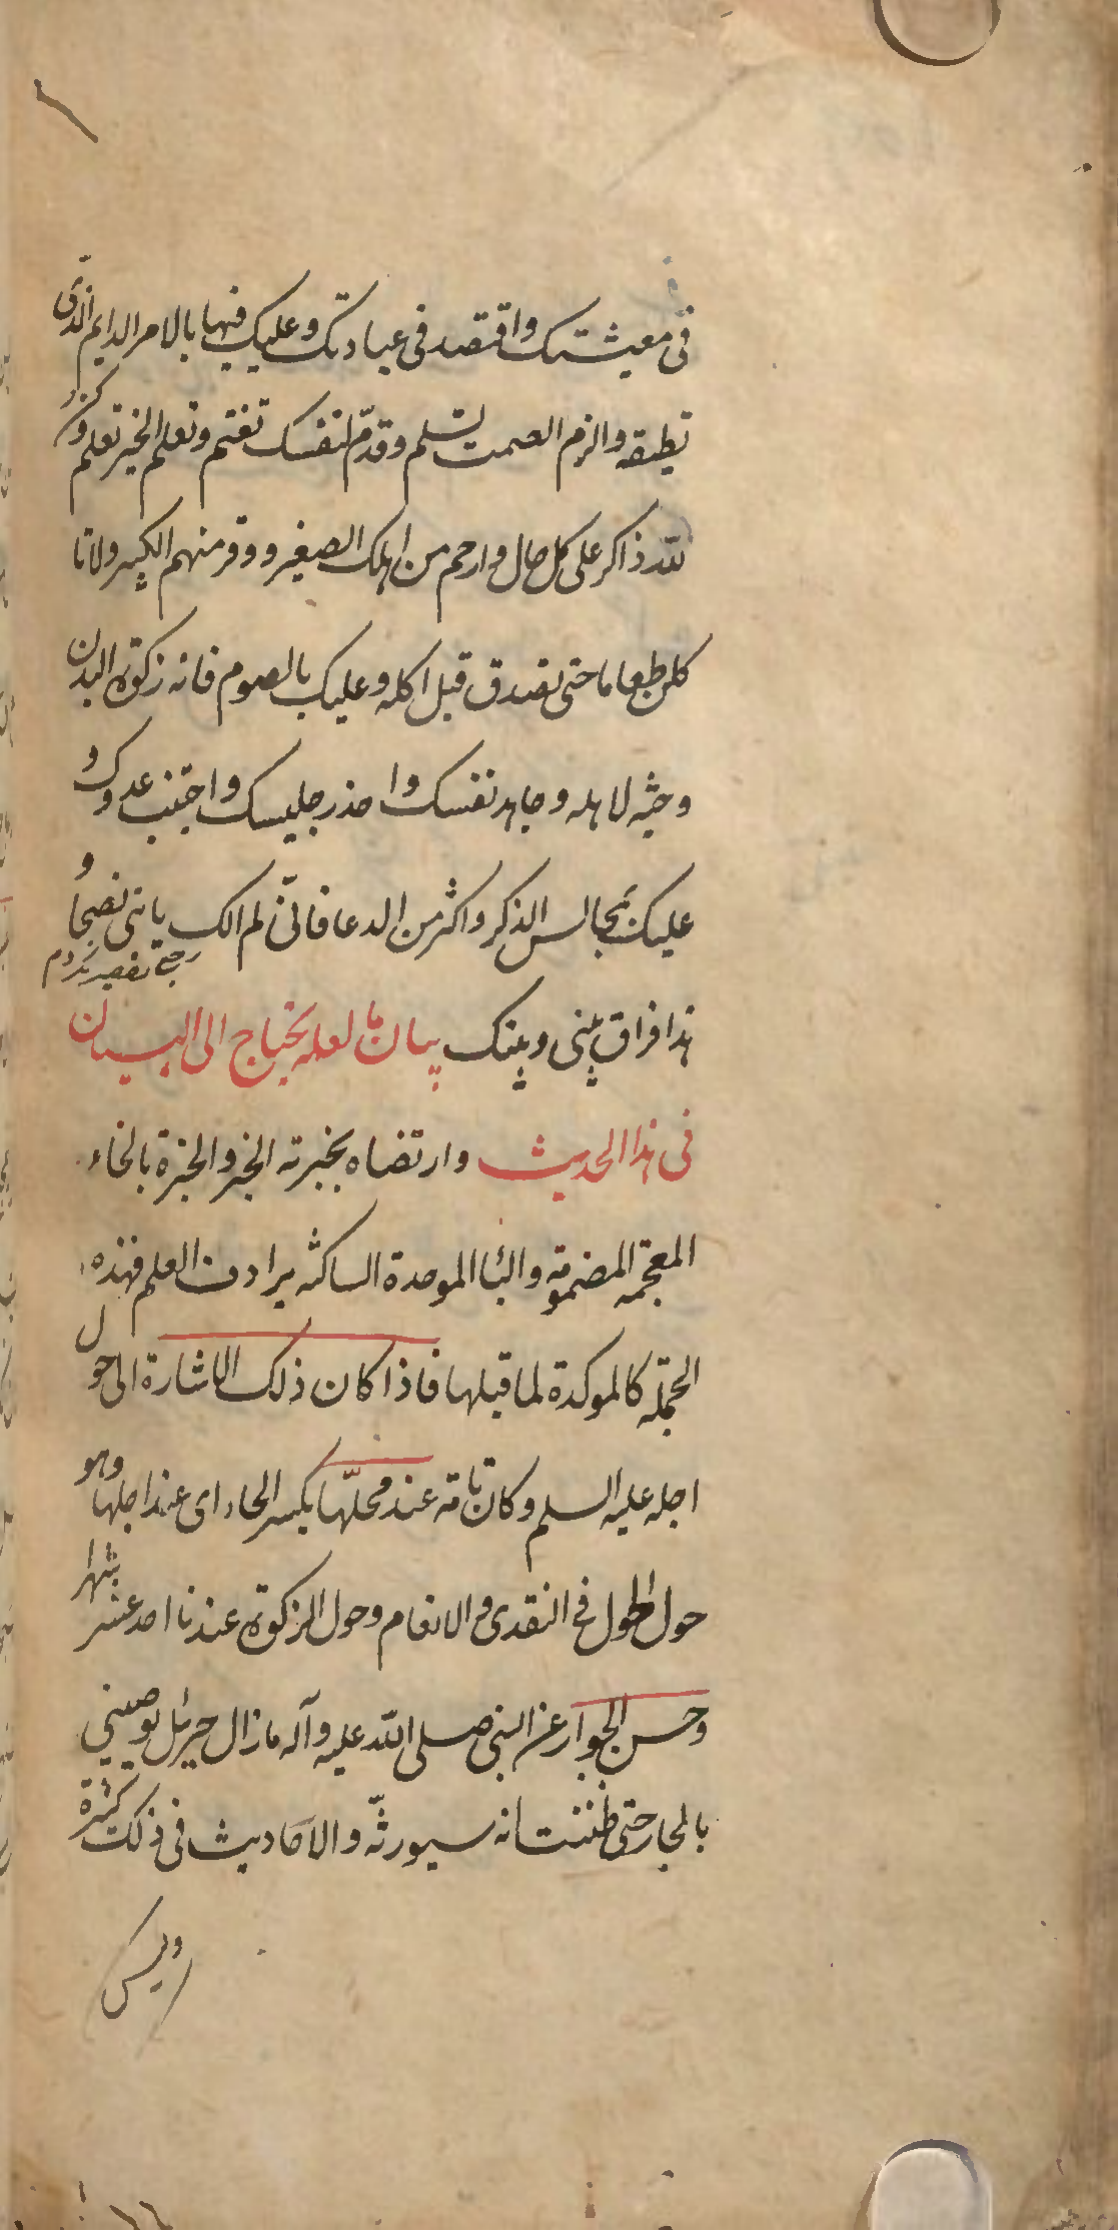 في معيشتك واقتصد في عبادتك وعليك فيها بالامر الدايم الذي
تطيقه والزم الصمت تسلم وقدّم لنفسك تغنم وتعلم الخير تعلم وكن
لله ذاكر على كل حال وارحم من اهلك الصغير ووقر منهم الكبير ولا تا
كلن طعاما حتى تصدق قبل اكله وعليك بالصوم فانه زكوة البدن
وجنّة لاهله وجاهد نفسك واحذر جليسك واجتنب عدوك و
عليك بمجالس الذكر واكثر من الدعا فانّي لم الك يا بني نصحا و
هذا فراق بيني وبينك بيان ما لعله يحتاج الى البيان
في هذا الحديث وارتضاه بخبرته الخبر والخبرة بالخاء
المعجمه المضمومة والباء الموحدة الساكنه يرادف العلم فهذه
الجملة كالموكدة لما قبلها فاذا كان ذلك الاشارة الى حول
اجله عليه السلم وكان تامة عند محلّها بكسر الحاء اى عند اجلها وهو
حول الحول في النقدى والانعام وحول الزكوة عندنا احد عشر شهرا
وحسن الجوار عن النبي صلى الله عليه وآله ما زال جبرئيل يوصيني
بالجار حتى ظننت انه سيورثّه والاحاديث في ذلك كثيرة
وليس